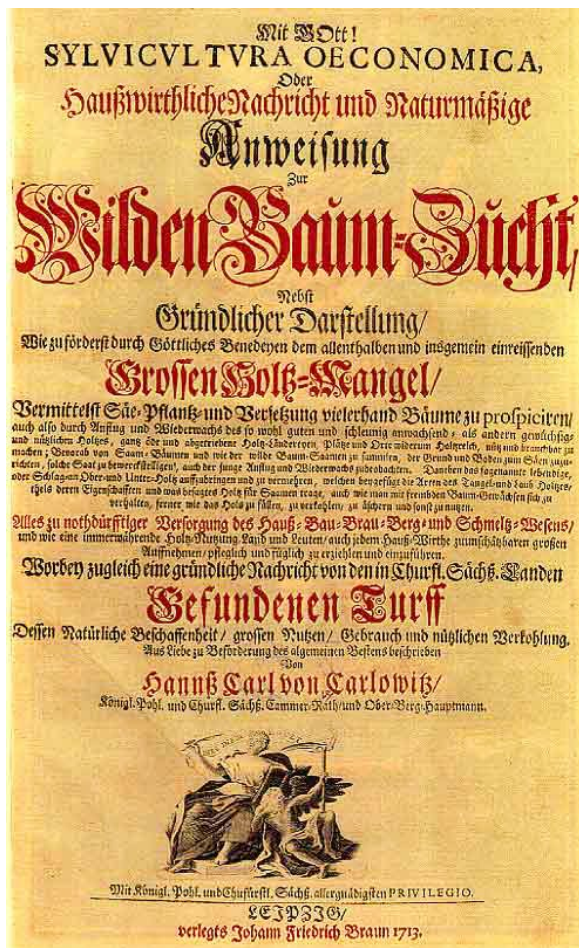 Mit GOtt!
SYLVICVLTVRA OECONOMICA,
Oder
Haußwirthliche Nachricht und Naturmäßige
Anweisung
Zur
Wilden Baum-Zucht/
Nebst
Gründlicher Darstellung/
Wie zu förderst durch Göttliches Benedeyen dem allenthalben und insgemein einreissenden
Grossen Holtz-Mangel/
Vermittelst Säe-Pflantz- und Versetzung vielerhand Bäume zu prospiciren/
auch also durch Anflug und Wiederwachs des so wohl guten und schleunig anwachsend- als andern gewüchsig-
und nützlichen Holtzes, gantz öde und abgetriebene Holtz-Ländereyen, Plätze und Orte widerum Holtzreich, nütz und brauchbar zu
machen; Bevorab von Saam-Bäumen und wie der wilde Baum-Saamen zu sammlen, der Grund und Boden zum Säen zuzu-
richten, solche Saat zu bewerckstelligen, auch der junge Anflug und Wiederwachs zu beobachten. Daneben das sogenannte lebendige,
oder Schlag-an Ober- und Unter-Holtz aufzubringen und zu vermehren, welchen beygefügt die Arten des Tangel- und Laub Holtzes,
theils deren Eigenschafften und was besagtes Holtz für Saamen trage, auch wie man mit frembden Baum-Gewächsen sich zu
verhalten, ferner wie das Holtz zu fällen, zu verkohlen, zu äschern und sonst zu nutzen.
Alles zu nothdürfftiger Versorgung des Hauß-Bau-Brau-Berg- und Schmeltz-Wesens/
und wie eine immerwährende Holtz-Nutzung Land und Leuten/ auch jedem Hauß-Wirthe zu unschätzbaren großen
Auffnehmen/ pfleglich und füglich zu erziehlen und einzuführen.
Worbey zugleich eine gründliche Nachricht von den in Churfl. Sächß. Landen
Gefundenen Turff
Dessen Natürliche Beschaffenheit/ grossen Nutzen/ Gebrauch und nützlichen Verkohlung.
Aus Liebe zu Beförderung des algemeinen Bestens beschrieben
Von
Hannß Carl von Carlowitz/
Königl. Pohl. und Churfl. Sächß. Cammer-Rath/ und Ober-Berg-Hauptmann.
Mit Königl. Pohl. und Chufürstl. Sächß. allergnädigsten PRIVILEGIO.
LEJPZJG/
verlegts Johann Friedrich Braun 1713.